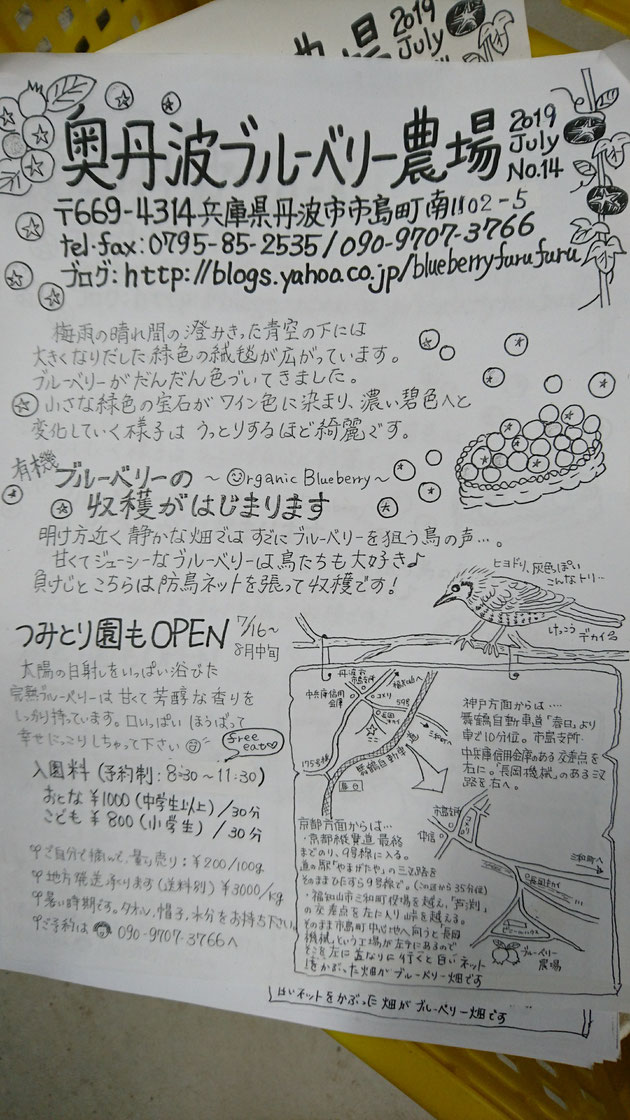 2019
July
奥丹波ブルーベリー農場
2019
July
No.14
〒669-4314 兵庫県丹波市市島町南1102-5
tel・fax:0795-85-2535/090-9707-3766
ブログ:http://blogs.yahoo.co.jp/blueberryfurufuru
梅雨の晴れ間の澄みきった青空の下には
大きくなりだした緑色の絨毯が広がっています。
ブルーベリーがだんだん色づいてきました。
小さな緑色の宝石がワイン色に染まり、濃い碧色へと
変化していく様子はうっとりするほど綺麗です。
有機ブルーベリーの ~Organic Blueberry~
収穫がはじまります
明け方近く静かな畑ではすでにブルーベリーを狙う鳥の声…。
甘くてジューシーなブルーベリーは鳥たちも大好き♪
負けじとこちらは防鳥ネットを張って収穫です!
ヒヨドリ、灰色っぽい
こんなトリ…
けっこう
デカイ名
つみとり園もOPEN 7/16~
8月中旬
太陽の日射しをいっぱい浴びた
完熟ブルーベリーは甘くて芳醇な香りを
しっかり持っています。口いっぱいほうばって
幸せにっこりしちゃって下さい
free
eat♡
入園料(予約制:8:30~11:30)
おとな ¥1000(中学生以上)/30分
こども ¥800(小学生)/30分
ご自分で摘んで、量り売り:¥200/100g
地方発送承ります(送料別)¥3000/kg
暑い時期です。タオル、帽子、水分をお持ち下さい。
ご予約は 090-9707-3766へ
丹波市
市島支所
中兵庫信用
金庫
コメリ
福知山へ
598
長岡
ここ
三和町へ
175号線
舞鶴自動車道
春日
神戸方面からは…
舞鶴自動車道「春日」より
車で10分位。市島支所・
中兵庫信用金庫のある交差点を
右に。「長岡機械」のある三又
路を右へ。
京都方面からは…
・京都縦貫道最終
まどのり、9号線に入る。
道の駅「やまがたや」の三又路を
そのままひたすら9号線で。(この辺から35分位)
・福知山市三和町役場を越え、「芦渕」
の交差点を左に入り峠を越える。
そのまま市島町中心地へ向うと長岡
機械という工場が左手にあるので
そこを左に道なりに行くと白いネット
をかぶった畑がブルーベリー畑です
市島支所
中信
コメリ
三和町へ
長岡キカイ
ビニールハウス
ブルーベリー
農場
白いネットをかぶった畑がブルーベリー畑です